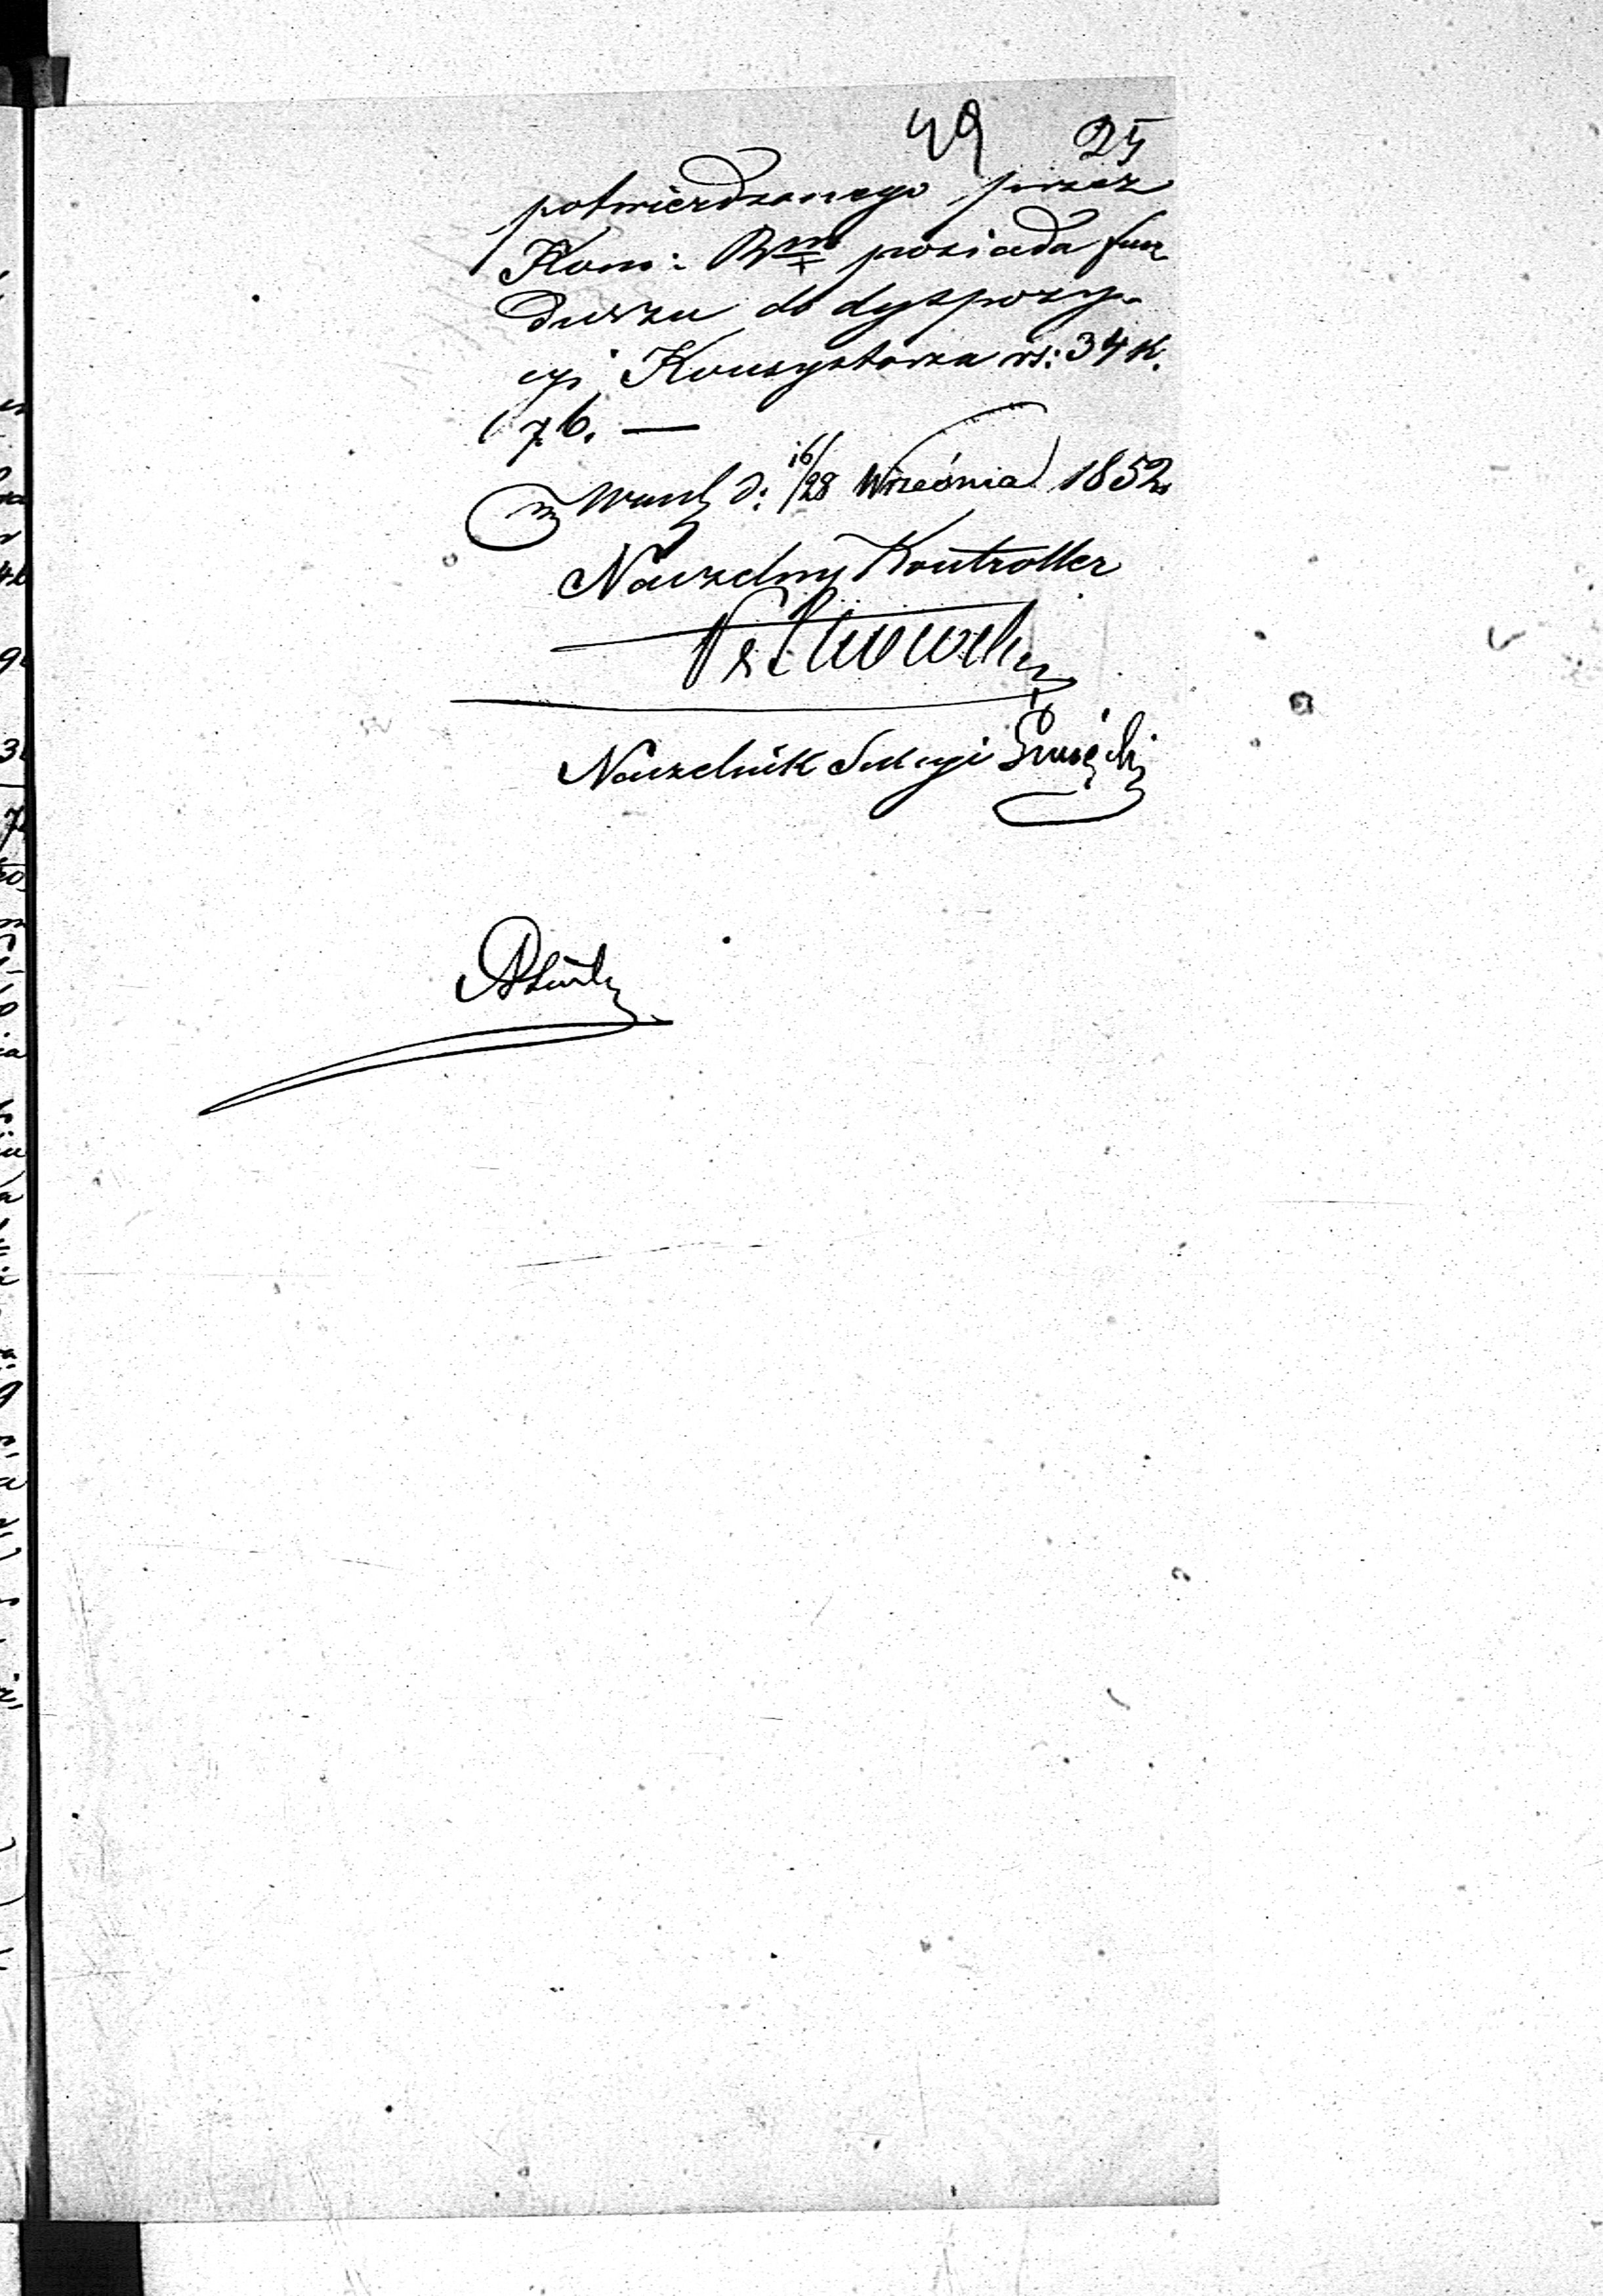 49 25
potwierdzonego przez
Kom: Rzą posiada fun
duszu do dyspozy-
cyi Konsystorza rs: 34 k.
76. —
w Warsz d: 16/28 Września 1852
Naczelny Kontroller
Naczelnik Sekcyi